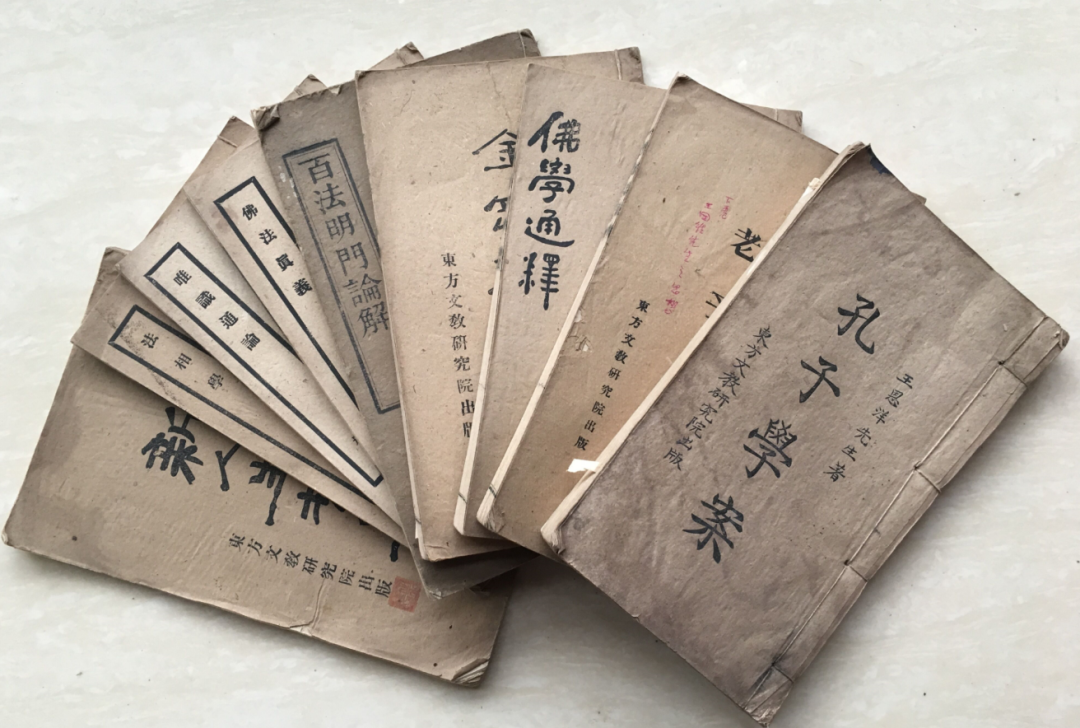 王恩洋先生著
孔子學案
東方文教研究院出版
老
東方文教研究院出版
佛學通釋
金
東方文教研究院出版
百法明門論解
佛法眞義
唯識通論
法相學
人生
東方文教研究院出版